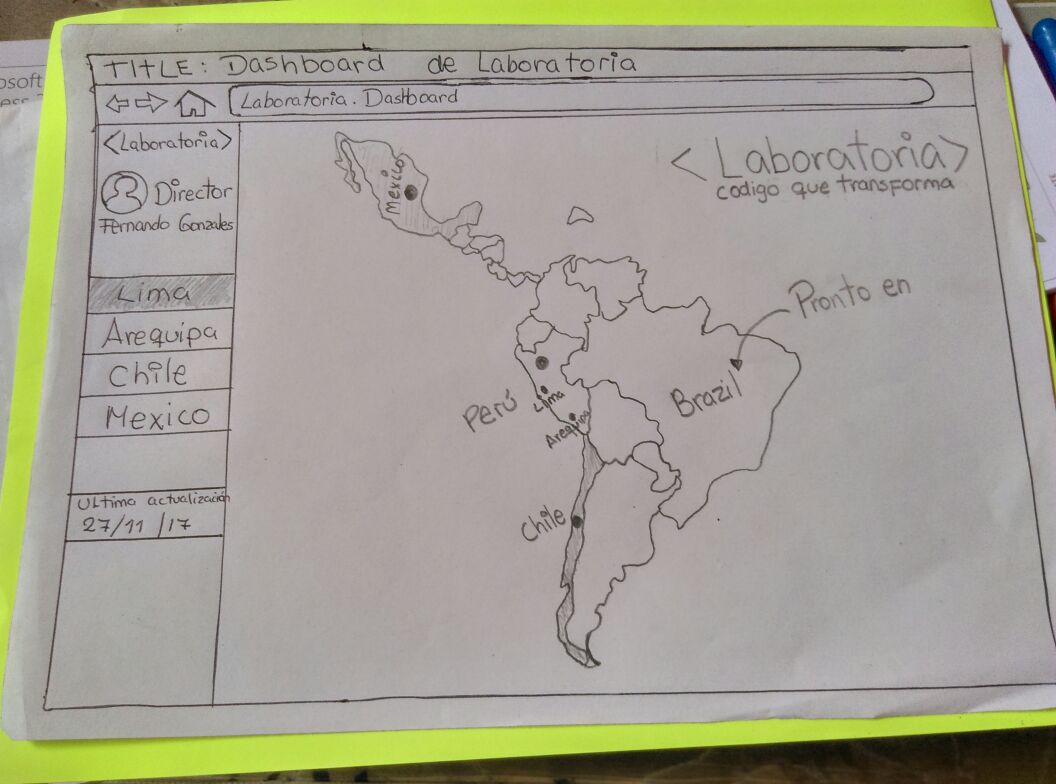 TITLE: Dashboard de Laboratoria
Laboratoria. Dashboard
<Laboratoria>
Director
Fernando Gonzales
Lima
Arequipa
Chile
Mexico
Ultima actualización
27/11/17
<Laboratoria>
codigo que transforma
Mexico
Pronto en
Brazil
Perú
Lima
Arequipa
Chile
osoft